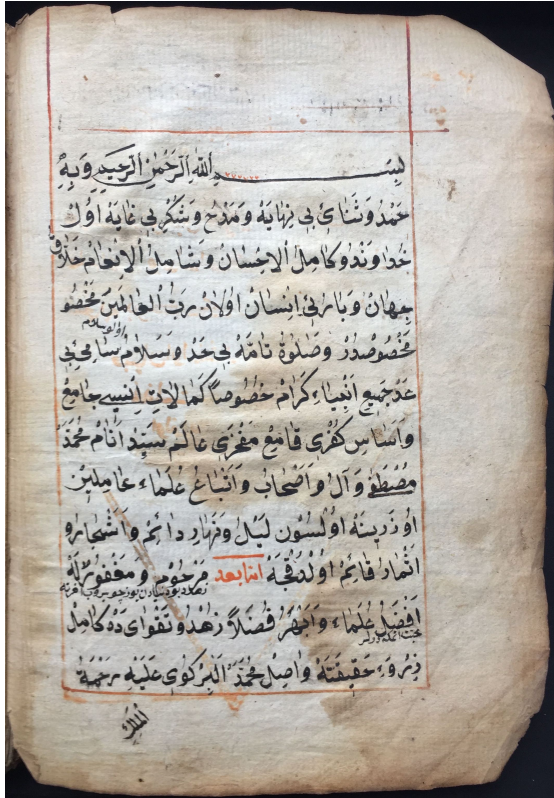 بسم الله الرحمن الرحيم وبه
حمد وثناى بى نهايه ومدح وشكر بى غايه اول
خداوندو كامل الاحسان وشامل الانعام خلاق
جهان وبارئ انسان اولان رب العالمين مخصو
مخصوصدر وصلوة تامه بى حد وسلام سامى بى
اولو سلام
عد جميع انبياء كرام خصوصا كمالات انسيه جامع
واساس كفرى قامع مفخرى عالم سيد انام محمد
مصطفى وآل واصحاب واتباع علماء عاملين
اوزرينه اولسون ليل ونهار دائم واشجارو
اثمار قائم اولدقجه اما بعد مرحوم ومغفور له
افضل علماء وابهر فضلا زهد وتقواى ده كامل
ذروه حقيقته واصل محمد البركوى عليه رحمة
الملك